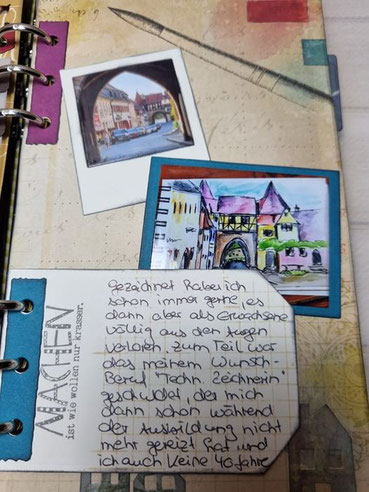 MACHEN
ist wie wollen nur krasser.
gezeichnet habe ich
schon immer gerne, es
dann aber als Erwachsene
völlig aus den Augen
verloren. Zum Teil war
das meinem Wunsch-
Beruf "Techn. Zeichnerin"
geschuldet, der mich
dann schon während
der Ausbildung nicht
mehr gereizt hat und
ich auch keine 40 Jahre